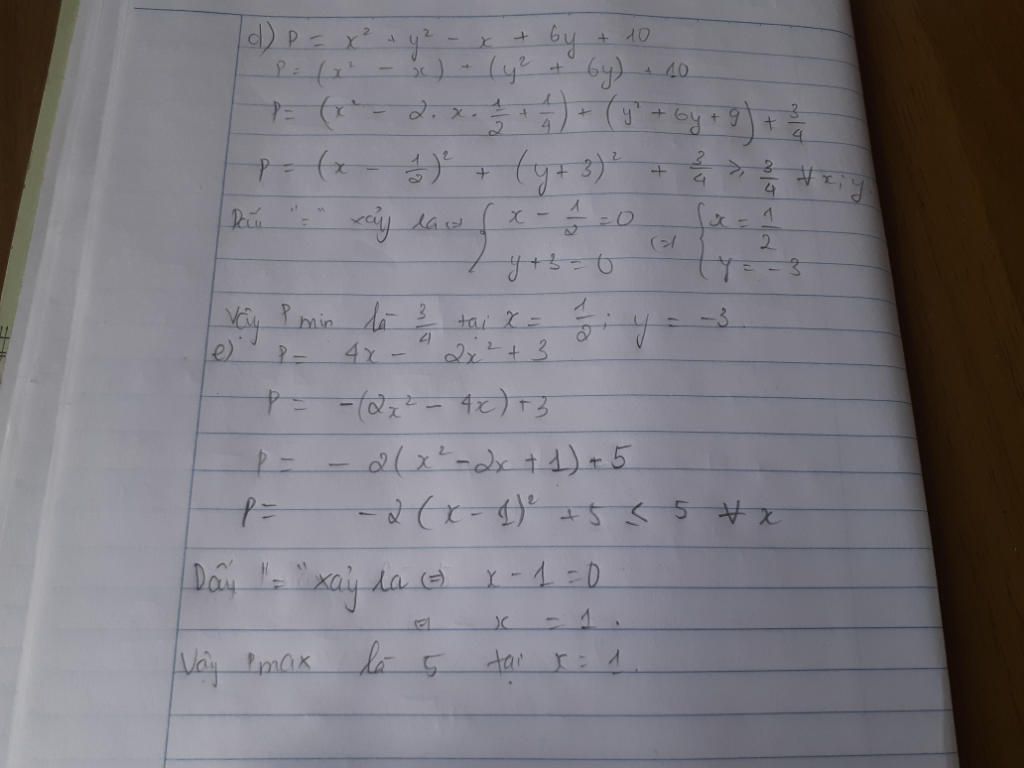 d) P = x² + y² - x + 6y + 10
P = (x² - x) + (y² + 6y) + 10
P = (x² - 2.x.1/2 + 1/4) + (y² + 6y + 9) + 3/4
P = (x - 1/2)² + (y + 3)² + 3/4 ≥ 3/4 ∀ x; y
Dấu "=" xảy ra ⇔ { x - 1/2 = 0 ; y + 3 = 0 ⇔ { x = 1/2 ; y = -3
Vậy P min là 3/4 tại x = 1/2; y = -3.
e) P = 4x - 2x² + 3
P = -(2x² - 4x) + 3
P = -2(x² - 2x + 1) + 5
P = -2(x - 1)² + 5 ≤ 5 ∀ x
Dấu "=" xảy ra ⇔ x - 1 = 0
⇔ x = 1.
Vậy Pmax là 5 tại x = 1.